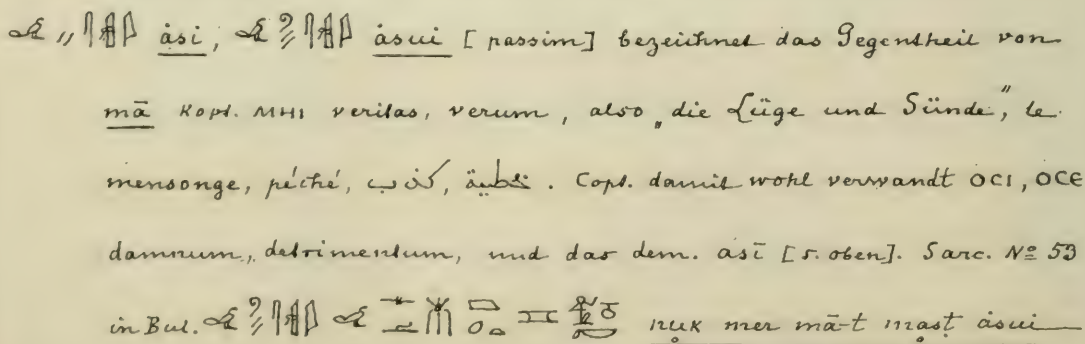 ȧsi, ȧsui [passim] bezeichnet das Gegentheil von
mā Kopt. ⲙⲏⲓ veritas, verum, also „die Lüge und Sünde", le
mensonge, péché, كذب, خطية. Copt. damit wohl verwandt ⲟⲥⲓ, ⲟⲥⲉ
damnum, detrimentum, und das dem. ȧsī [s. oben]. Sarc. Nº 53
in Bul. nuk mer mā-t mast ȧsui